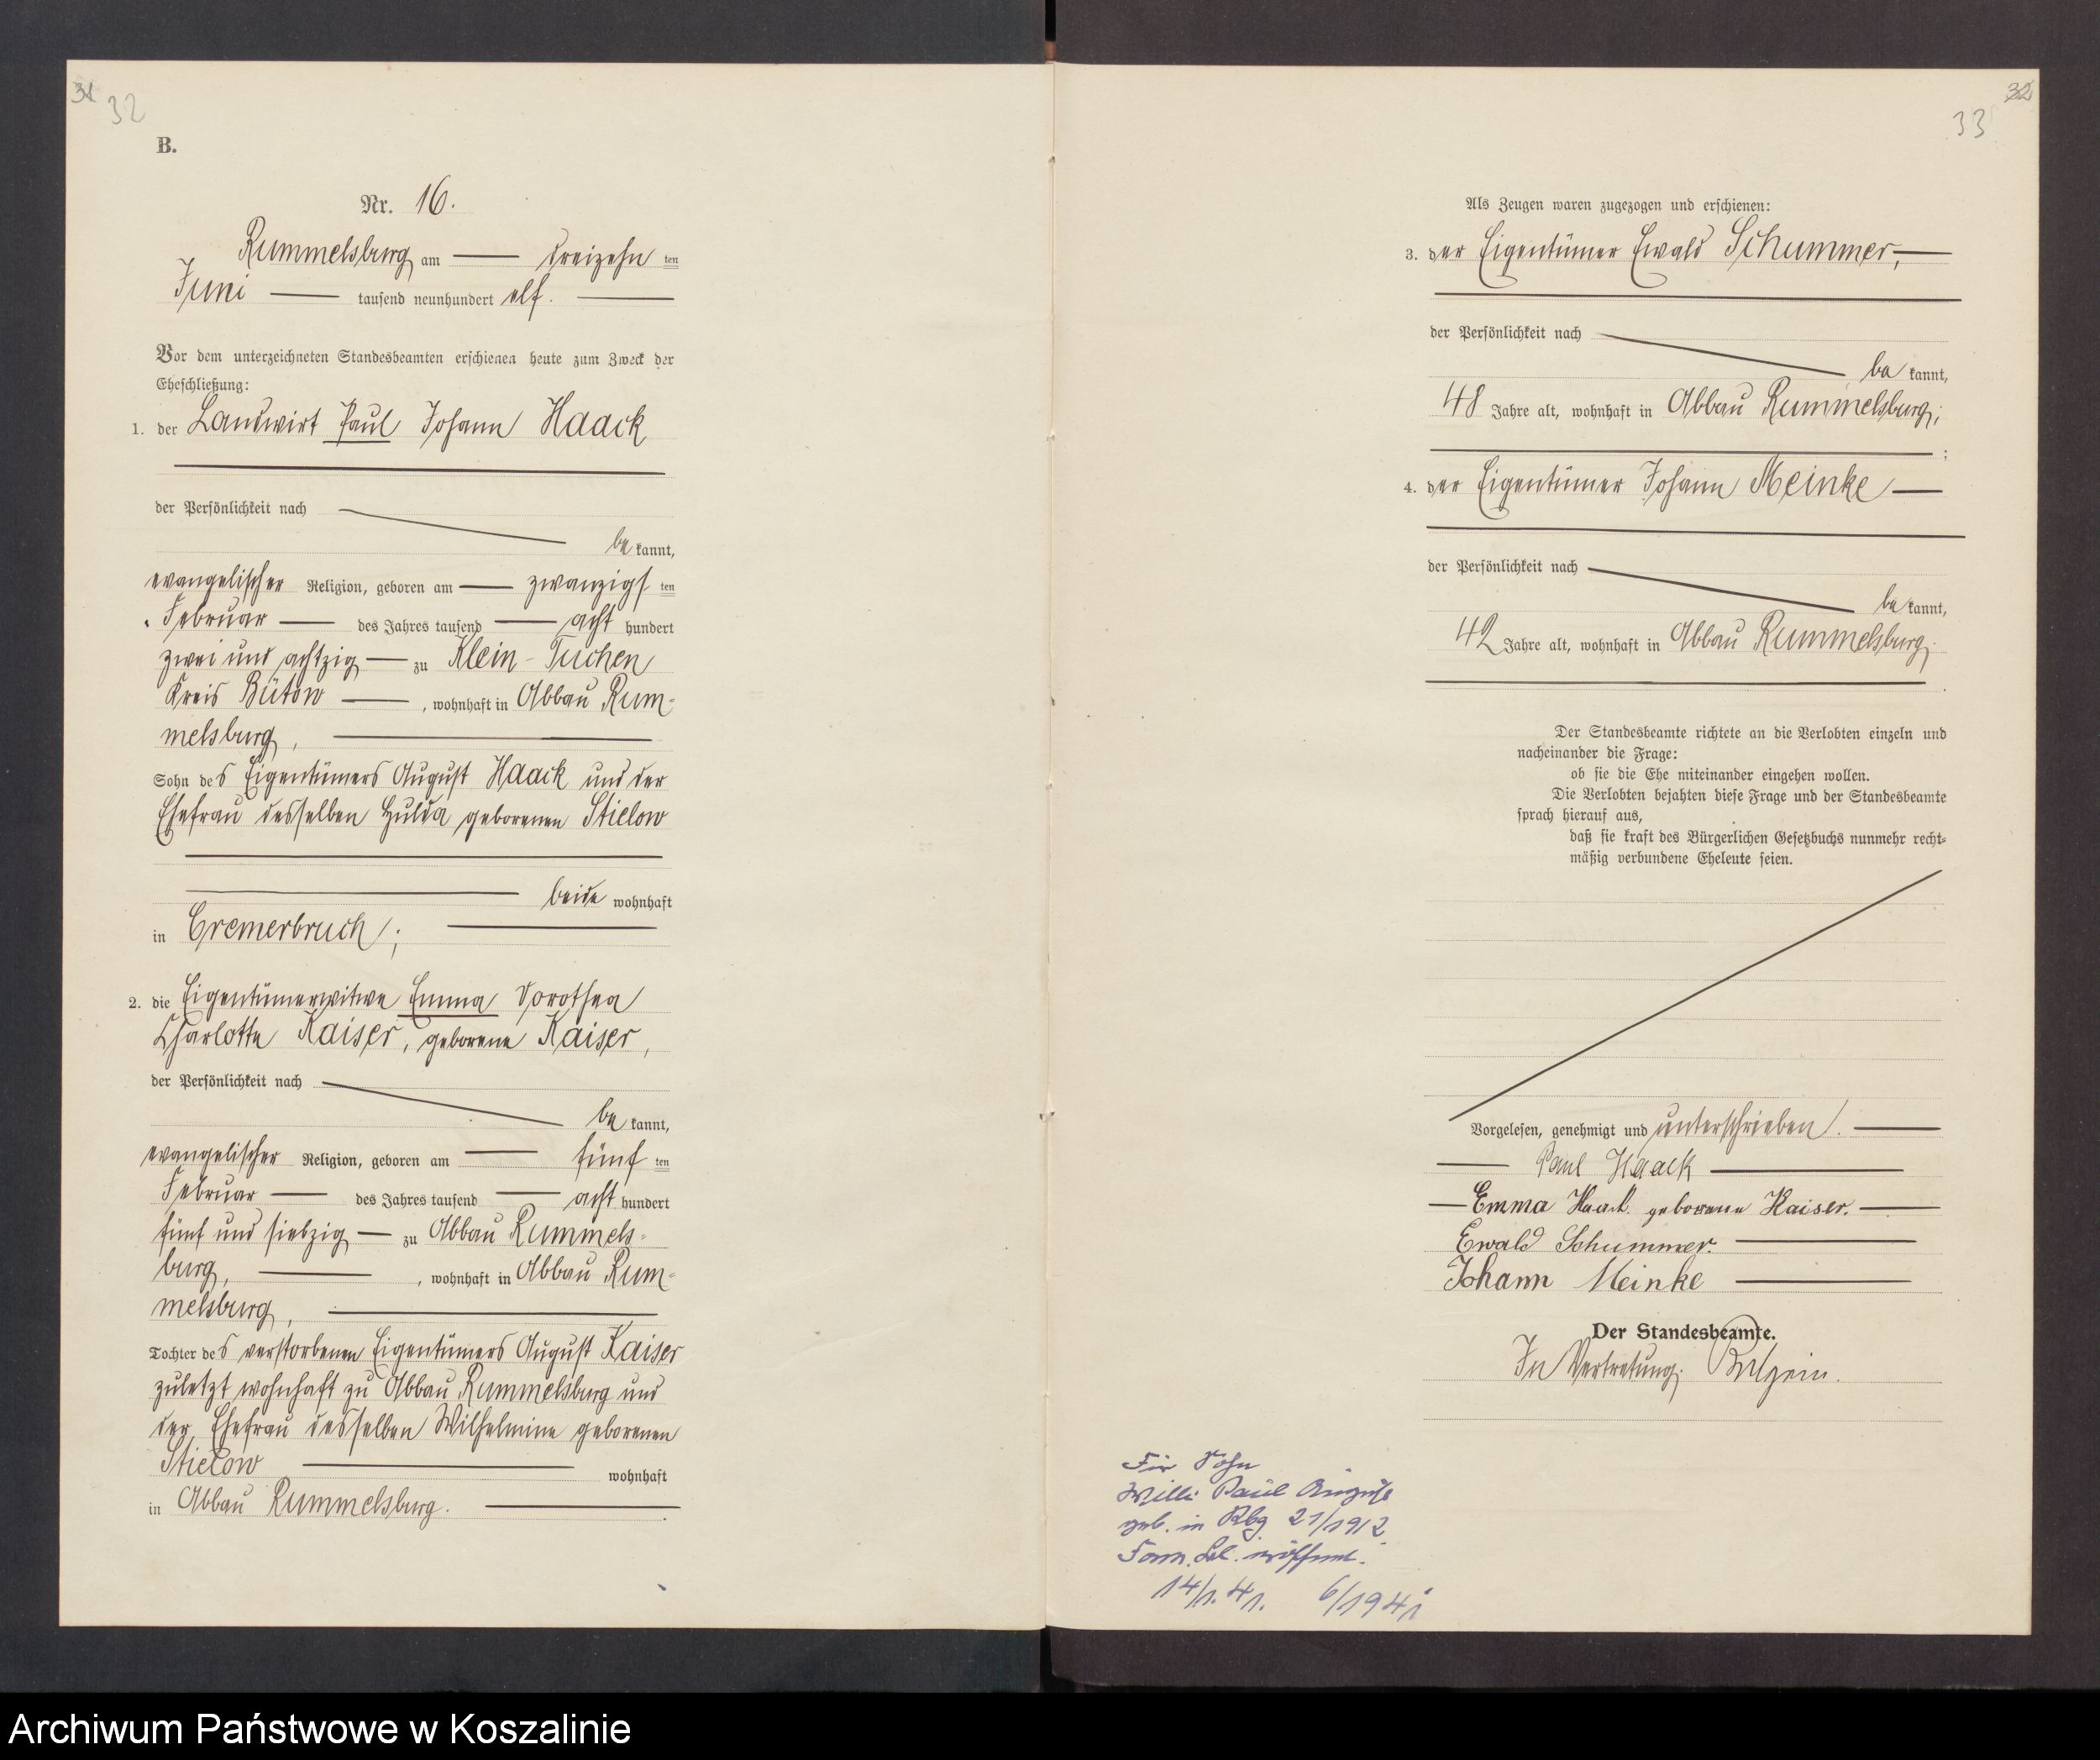 31
32
B.
Nr. 16.
Rummelsburg am dreizehn ten
Juni tausend neunhundert elf.
Vor dem unterzeichneten Standesbeamten erschienen heute zum Zweck der
Eheschließung:
1. der Landwirt Paul Johann Haack
der Persönlichkeit nach
be kannt,
evangelischer Religion, geboren am zwanzigs ten
Februar des Jahres tausend acht hundert
zwei und achtzig zu Klein-Tuchen
Kreis Bütow, wohnhaft in Abbau Rum-
melsburg,
Sohn des Eigentümers August Haack und der
Ehefrau desselben Hulda geborenen Stielow
beide wohnhaft
in Cremerbruch;
2. die Eigentümerwitwe Emma Dorothea
Charlotte Kaiser, geborene Kaiser,
der Persönlichkeit nach
be kannt,
evangelischer Religion, geboren am fünf ten
Februar des Jahres tausend acht hundert
fünf und siebzig zu Abbau Rummels-
burg, wohnhaft in Abbau Rum-
melsburg,
Tochter des verstorbenen Eigentümers August Kaiser
zuletzt wohnhaft zu Abbau Rummelsburg und
der Ehefrau desselben Wilhelmine geborenen
Stielow wohnhaft
in Abbau Rummelsburg.
32
33
Als Zeugen waren zugezogen und erschienen:
3. der Eigentümer Ewald Schummer,
der Persönlichkeit nach
be kannt,
48 Jahre alt, wohnhaft in Abbau Rummelsburg;
4. der Eigentümer Johann Meinke
der Persönlichkeit nach
be kannt,
42 Jahre alt, wohnhaft in Abbau Rummelsburg.
Der Standesbeamte richtete an die Verlobten einzeln und
nacheinander die Frage:
ob sie die Ehe miteinander eingehen wollen.
Die Verlobten bejahten diese Frage und der Standesbeamte
sprach hierauf aus,
daß sie kraft des Bürgerlichen Gesetzbuchs nunmehr recht-
mäßig verbundene Eheleute seien.
Vorgelesen, genehmigt und unterschrieben.
Paul Haack
Emma Haack geborene Kaiser.
Ewald Schummer.
Johann Meinke
Der Standesbeamte.
In Vertretung:
Für Sohn
Willi Paul August
geb. in Rbg 21/1912
14/1. 41. 6/1941
Archiwum Państwowe w Koszalinie